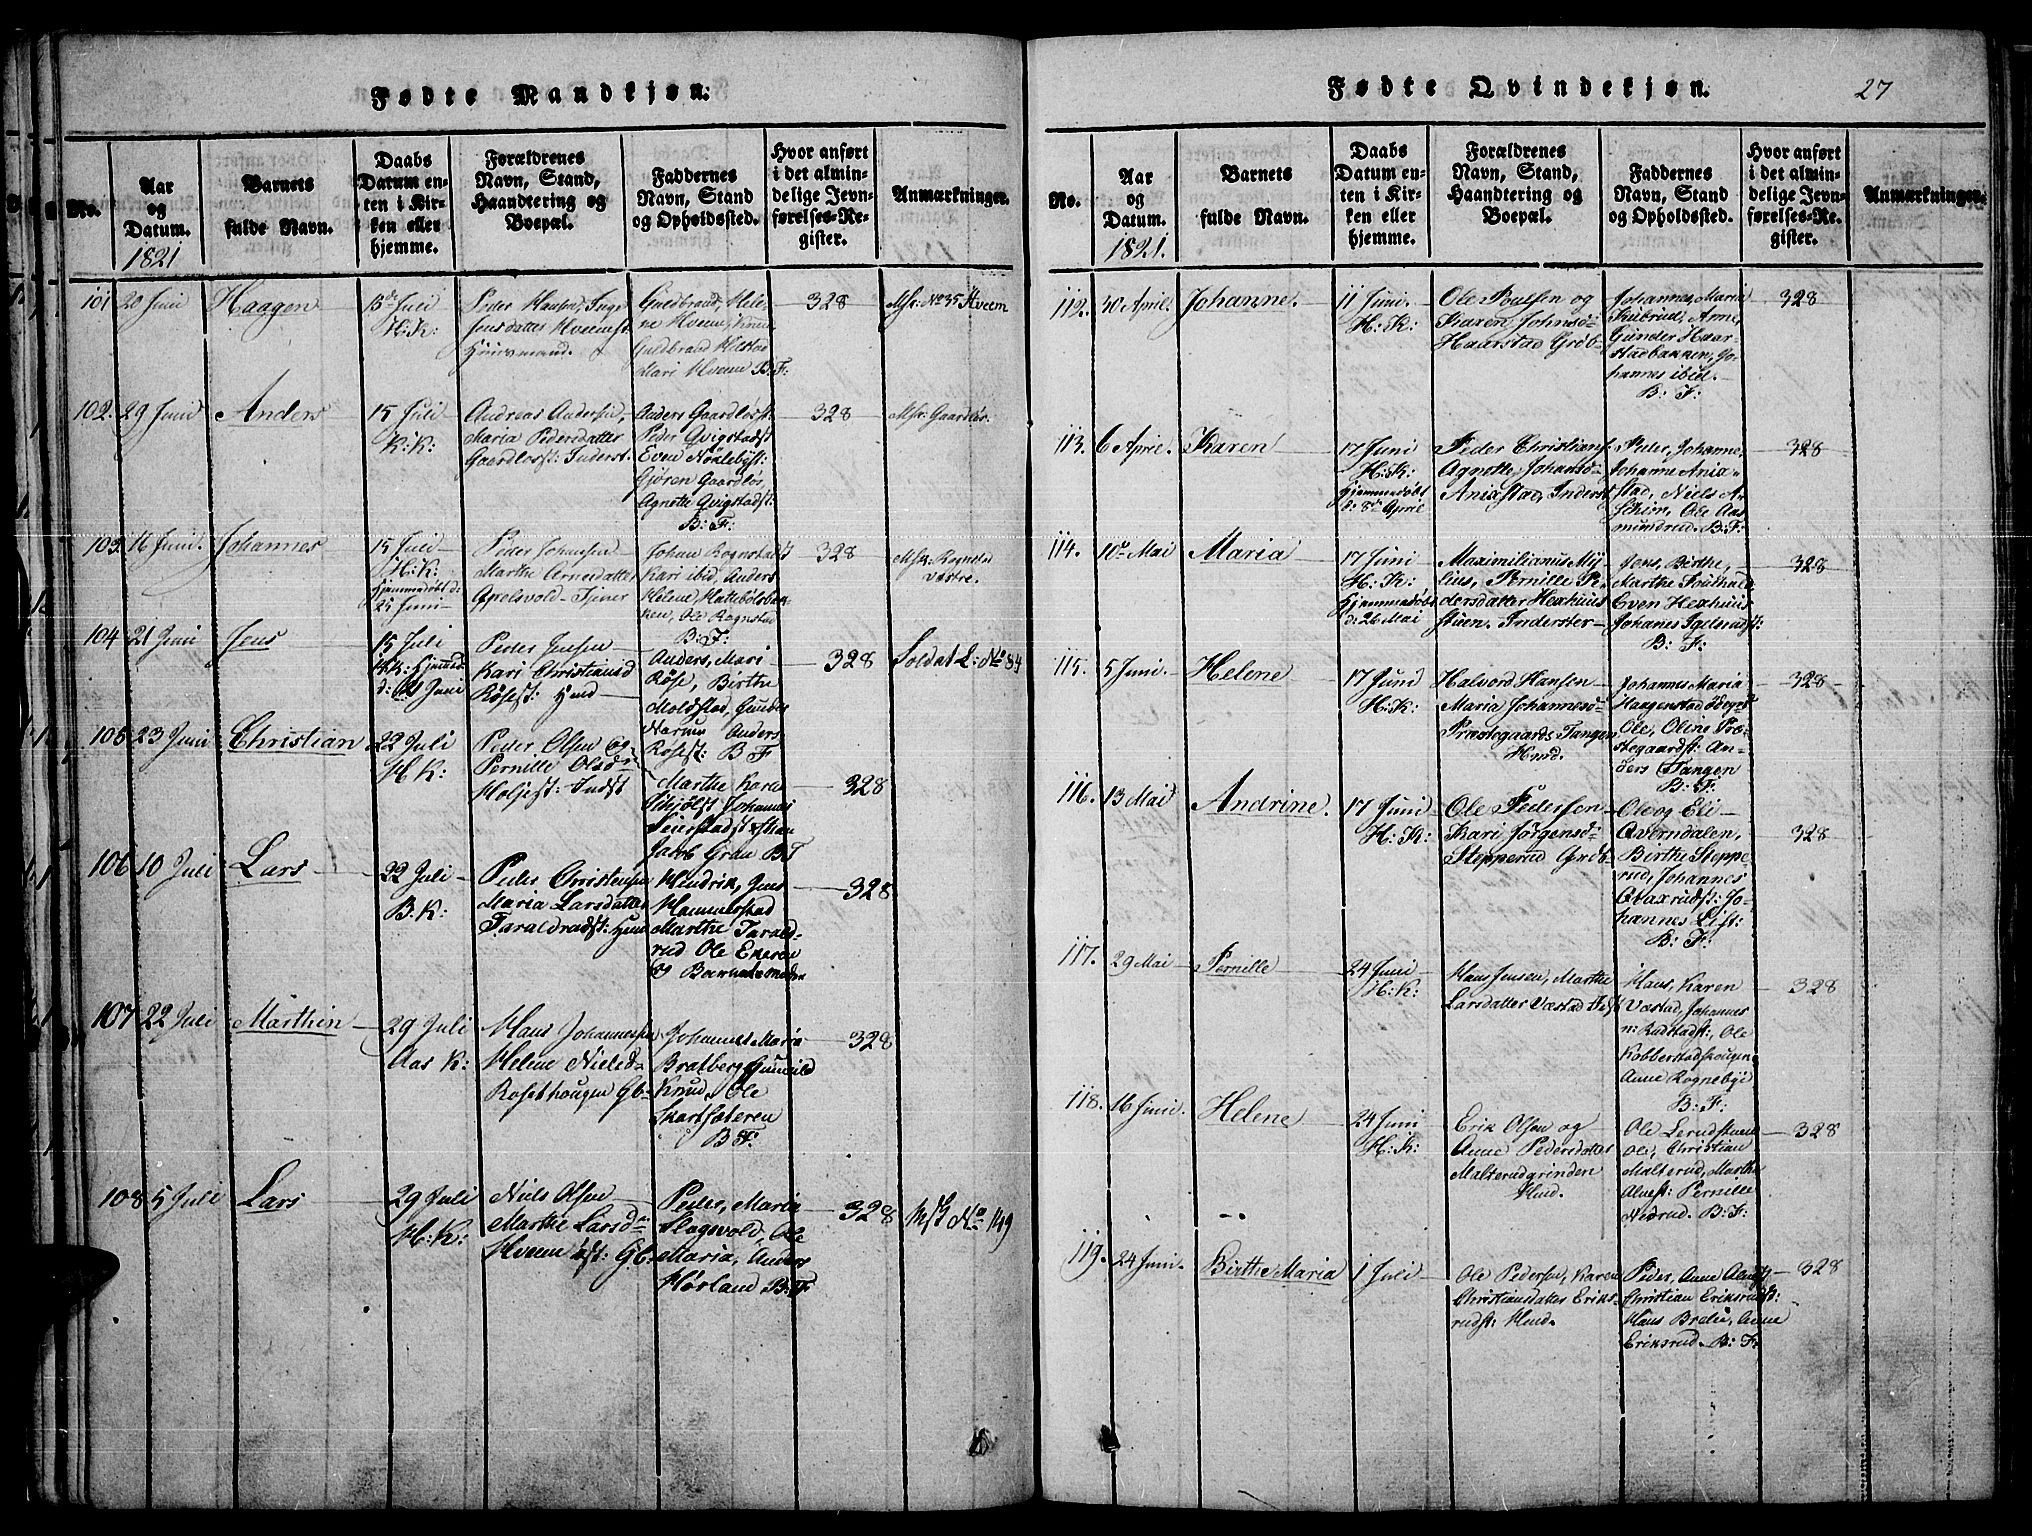 Fødte Mandkjøn.
No.
Aar og Datum.
1821
Barnets fulde Navn.
Daabs Datum enten i Kirken eller hjemme.
Forældrenes Navn, Stand, Haandtering og Boepæl.
Faddernes Navn, Stand og Opholdssted.
Hvor anført i det almindelige Jevnførelses-Register.
Anmarkninger.
101
20 Juni
Haagen
15de Juli
H:K:
Peder Hansen, Inge
Jensdatter Hveemst.
Huusmand.
Guldbrand, Hele-
ne Hveem, Knud
Guldbrand Hilstad
Mari Hveem B:F:
328
Msr: No 35 Hveem
102.
29 Juni
Anders
15 Juli
K:K:
Andreas Andersen,
Maria Pedersdatter
Gaardlosst: Inderst.
Anders Gaardlosst:
Peder Qvigstadst
Even Nøklebyst:
Gjøren Gaardlos
Agnette Qvigstadst:
B: F:
328
Msr: Gaardlos.
103.
16 Juni.
Johannes
15 Juli
H:K:
Hjemmedøbt d:
25 Juni
Peder Johansen
Marthe Arnesdatter
Apelsvold - Tjener
Johan Rognstad
Kari ibid, Anders
Helene Hattebølsbak-
ken, Ole Rognstad
B: F:
328
Msr: Rognstad
vestre.
104
21 Juni
Jens
15 Juli
K:K: Hjemd:
d: 21 Juni
Peder Jensen
Kari Christiansd
Røsest: Hmd
Anders, Mari
Røse, Birthe
Moldstad, Gunder
Narum Anders
Røsest: B F
328
Soldat L: No 84
105
23 Juni
Christian
22 Juli
H K:
Peder Olsen og
Pernille Olsdr
Holjest: Indst
Marthe Karen
Johannes
Neierstadst
Jacob Grau B F
328
106
10 Juli
Lars
22 Juli
B.K:
Peder Christensen
Maria Larsdatter
Taraldrudst: Hmd
Hendrik, Jens
Hammerstad
Marthe Tarald-
rud Ole Ekeren
og Barnets moder
328
107
22 Juli
Marthin
29 Juli
Aas K:
Hans Johannesen
Helene Nielsd
Rosethougen Gb
Johannes Maria
Bratberg, Gunnild
Knud, Ole
Skartsæteren
B F:
328
108
5 Juli
Lars
29 Juli
H: K:
Niels Olsen
Marthe Larsdr
Hveem øst: Gb.
Peder, Maria
Slagsvold, Ole
Maria, Anders
Hørland B:F
328
No 149
Fødte Qvindekjøn.
27
No.
Aar og Datum.
1821.
Barnets fulde Navn.
Daabs Datum enten i Kirken eller hjemme.
Forældrenes Navn, Stand, Haandtering og Boepæl.
Faddernes Navn, Stand og Opholdssted.
Hvor anført i det almindelige Jevnførelses-Register.
Anmarkninger.
112.
30 April.
Johanne.
11 Juni.
H: K:
Ole Poulsen og
Karen Johnsd
Haarstad Grdb
Johannes, Maria
Skibrud, Arne,
Gunder Haar-
stadbakken, Jo-
hannes ibid.
B: F:
328
113.
6 April.
Karen
17 Juni
H: K:
Hjemmedøbt
d: 8de April
Peder Christians:
Agnette Johansd
Anixstad, Inderst
Peder, Johanne,
Johanne Anix-
stad, Niels A-
schim, Ole Aas-
mundrud. B:F:
328
114.
10de Mai
Maria
17 Juni
H: K:
Hjemmedøbt
d: 26 Mai
Maximilianus Myj-
lius, Pernille Pe-
dersdatter Hexhuus
stuen. Inderster
Jens, Birthe,
Marthe Fruihuld
Even Hexhuus
Johanes Igelsrudst:
B: F:
328
115.
5 Juni.
Helene
17 Juni
H: K:
Halvord Hansen
Maria Johannesd
Præstegaards Tangen
Hmd.
Johannes Maria
Haagenstad ødegrd
Ole, Oline Præ-
stegaardst: An-
ders Tangen
B: F:
328
116.
13 Mai
Andrine.
17 Juni
H: K:
Ole Pedersen
Kari Jørgensd:
Stepperud Grdb
Ole og Eli
Qverndalen,
Birthe Steppe-
rud, Johannes
Qvaxrudst: Jo-
hannes List:
B: F:
328
117.
29 Mai
Pernille
24 Juni
H: K:
Hans Jensen, Marthe
Larsdatter Væstad
Hans, Karen
Væstad, Johannes
n: Rudstadst: Ole
Kobberstadhougen
Anne Rognebye
B: F:
328
118.
16 Juni.
Helene
24 Juni
H: K:
Erik Olsen og
Anne Pedersdatter
Malterudgrinden
Hmd.
Ole Lerudstuen
Ole, Christian
Malterud, Marthe
Alvest: Pernille
Nedrud. B: F:
328
119.
24 Juni.
Birthe Maria
1 Juli
Ole Pedersen, Karen
Christiansdatter Eriks-
rudst: Hmd.
Peder, Anne
Christian Eriksrudst:
Hans Bralie, Anne
Eriksrud. B: F:
328